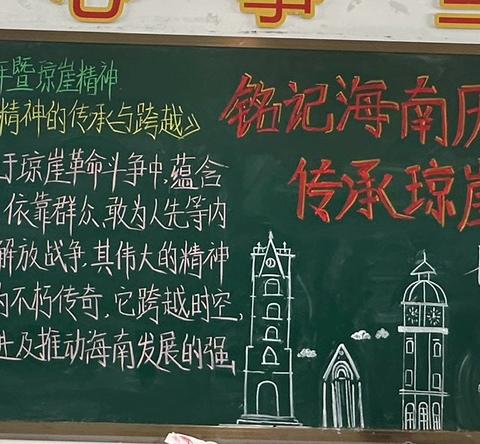 暨琼崖精神
精神的传承与跨越》
于琼崖革命斗争中,蕴含
依靠群众,敢为人先等内
解放战争,其伟大的精神
为不朽传奇,它跨越时空,
进及推动海南发展的强
铭记海南历
传承琼崖